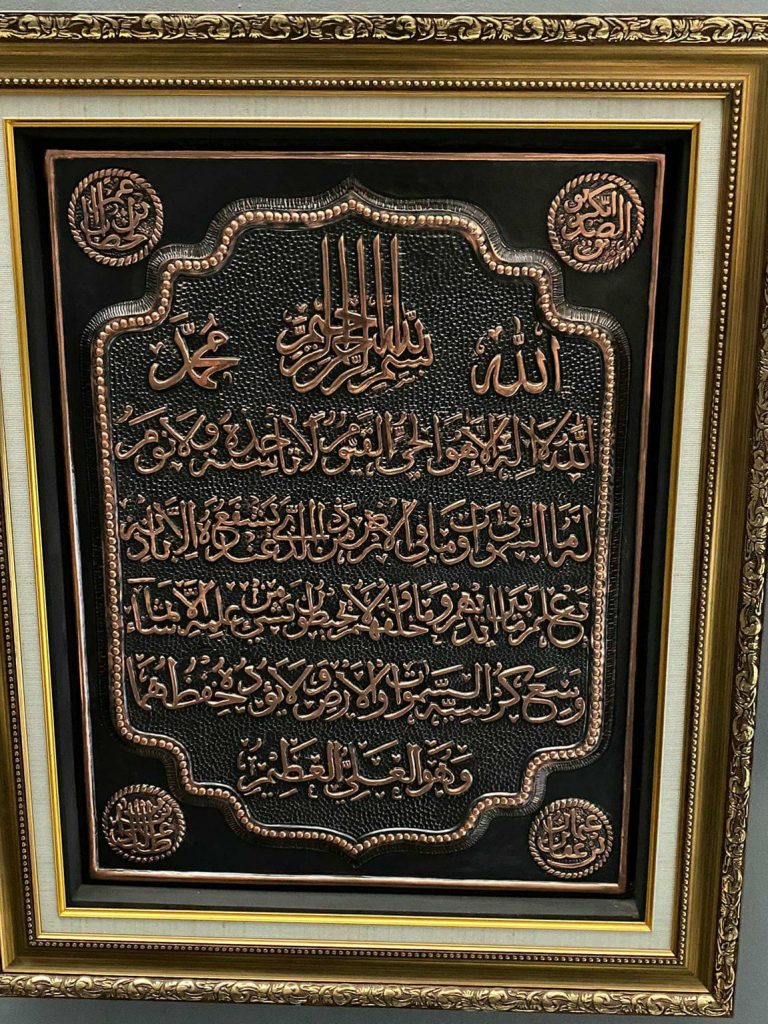 ابو بكر الصديق
عمر ابن الخطاب
الله
بسم الله الرحمن الرحيم
مُحَمَّد
اللهُ لا اِلهَ اِلاَّ هُوَ الحَيُّ القَيُّومُ لَا تَأخُذُهُ سِنَةٌ وَلَا نَومٌ
لَهُ مَا فِي السَّمواتِ وَمَا فِي الاَرضِ مَن ذَا الَّذِي يَشفَعُ عِندَهُ اِلاَّ بِاِذنِهِ
يَعلَمُ مَا بَينَ اَيدِيهِم وَمَا خَلفَهُم وَلَا يُحِيطُونَ بِشَيءٍ مِن عِلمِهِ اِلاَّ بِمَا شَاءَ
وَسِعَ كُرسِيُّهُ السَّمواتِ وَالاَرضَ وَلَا يَؤُدُهُ حِفظُهُمَا
وَهُوَ العَلِيُّ العَظِيمُ
عثمان ابن عفان